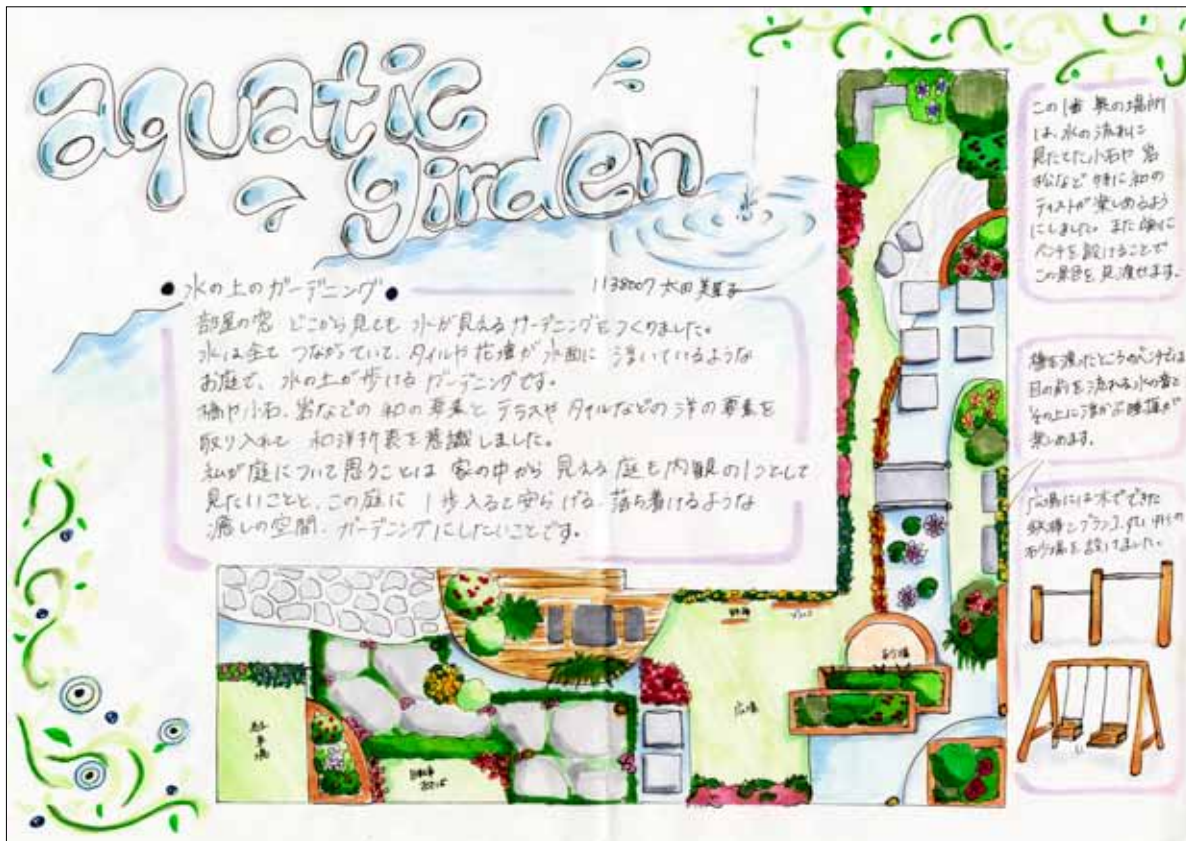 aquatic
girden
水の上のガーデニング
1138007 太田
部屋の窓 どこから見ても 水が見えるガーデニングをつくりました。
水は全て つながっていて、タイルや花壇が水面に 浮いているような
お庭で、水の上が歩けるガーデニングです。
橋や小石、岩などの 和の要素と テラスや タイルなどの 洋の要素を
取り入れて 和洋折衷を意識しました。
私が庭について思うことは 家の中から 見える 庭も内観の1つとして
見たいことと、この庭に 1歩入ると安らげる、落ち着けるような
癒しの空間、ガーデニングにしたいことです。
この1番 奥の場所
は、水の流れに
見たてた小石や 岩
松など 特に和の
テイストが楽しめるよう
にしました。また 端に
ベンチを設けることで
この景色を見渡せます。
橋を渡ったところのベンチでは
目の前を流れる水の音と
その上に浮かぶ睡蓮が
楽しめます。
広場には木でできた
鉄棒とブランコ、丸い形の
砂場を設けました。
鉄棒
ブランコ
砂場
広場
駐車場
自転車
おきば